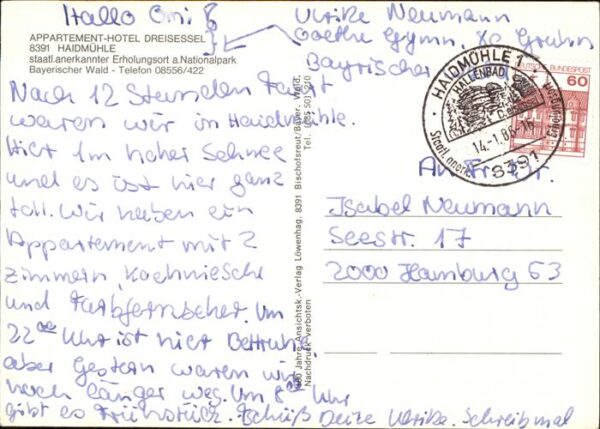 Hallo Omi
APPARTEMENT-HOTEL DREISESSEL
8391 HAIDMÜHLE
staatl.anerkannter Erholungsort a.Nationalpark
Bayerischer Wald - Telefon 08556/422
Nach 12 Stunden Fahrt
waren wir in Haidmühle.
Hier 1m hoher Schnee
und es ist hier ganz
toll. Wir haben ein
Appartement mit 2
Zimmern, Kochniesche
und Farbfernseher. Um
22 Uhr ist hier Bettruhe
aber Gestern waren wir
noch länger weg. Um 8 Uhr
gibt es Frühstück. Tschüß Deine Ulrike. Schreib mal
Ulrike Neumann
Goethe Gymn.
Bayrischer
HAIDMÜHLE 1
HALLENBAD
14-1.86-
Staatl. anerk.
8391
DEUTSCHE BUNDESPOST
60
An Fr. Dr.
Isabel Neumann
Seestr. 17
2000 Hamburg 63
Jahre Ansichtsk.-Verlag Löwenhag, 8391 Bischofsreut/Bayer. Wald,
Nachdruck verboten